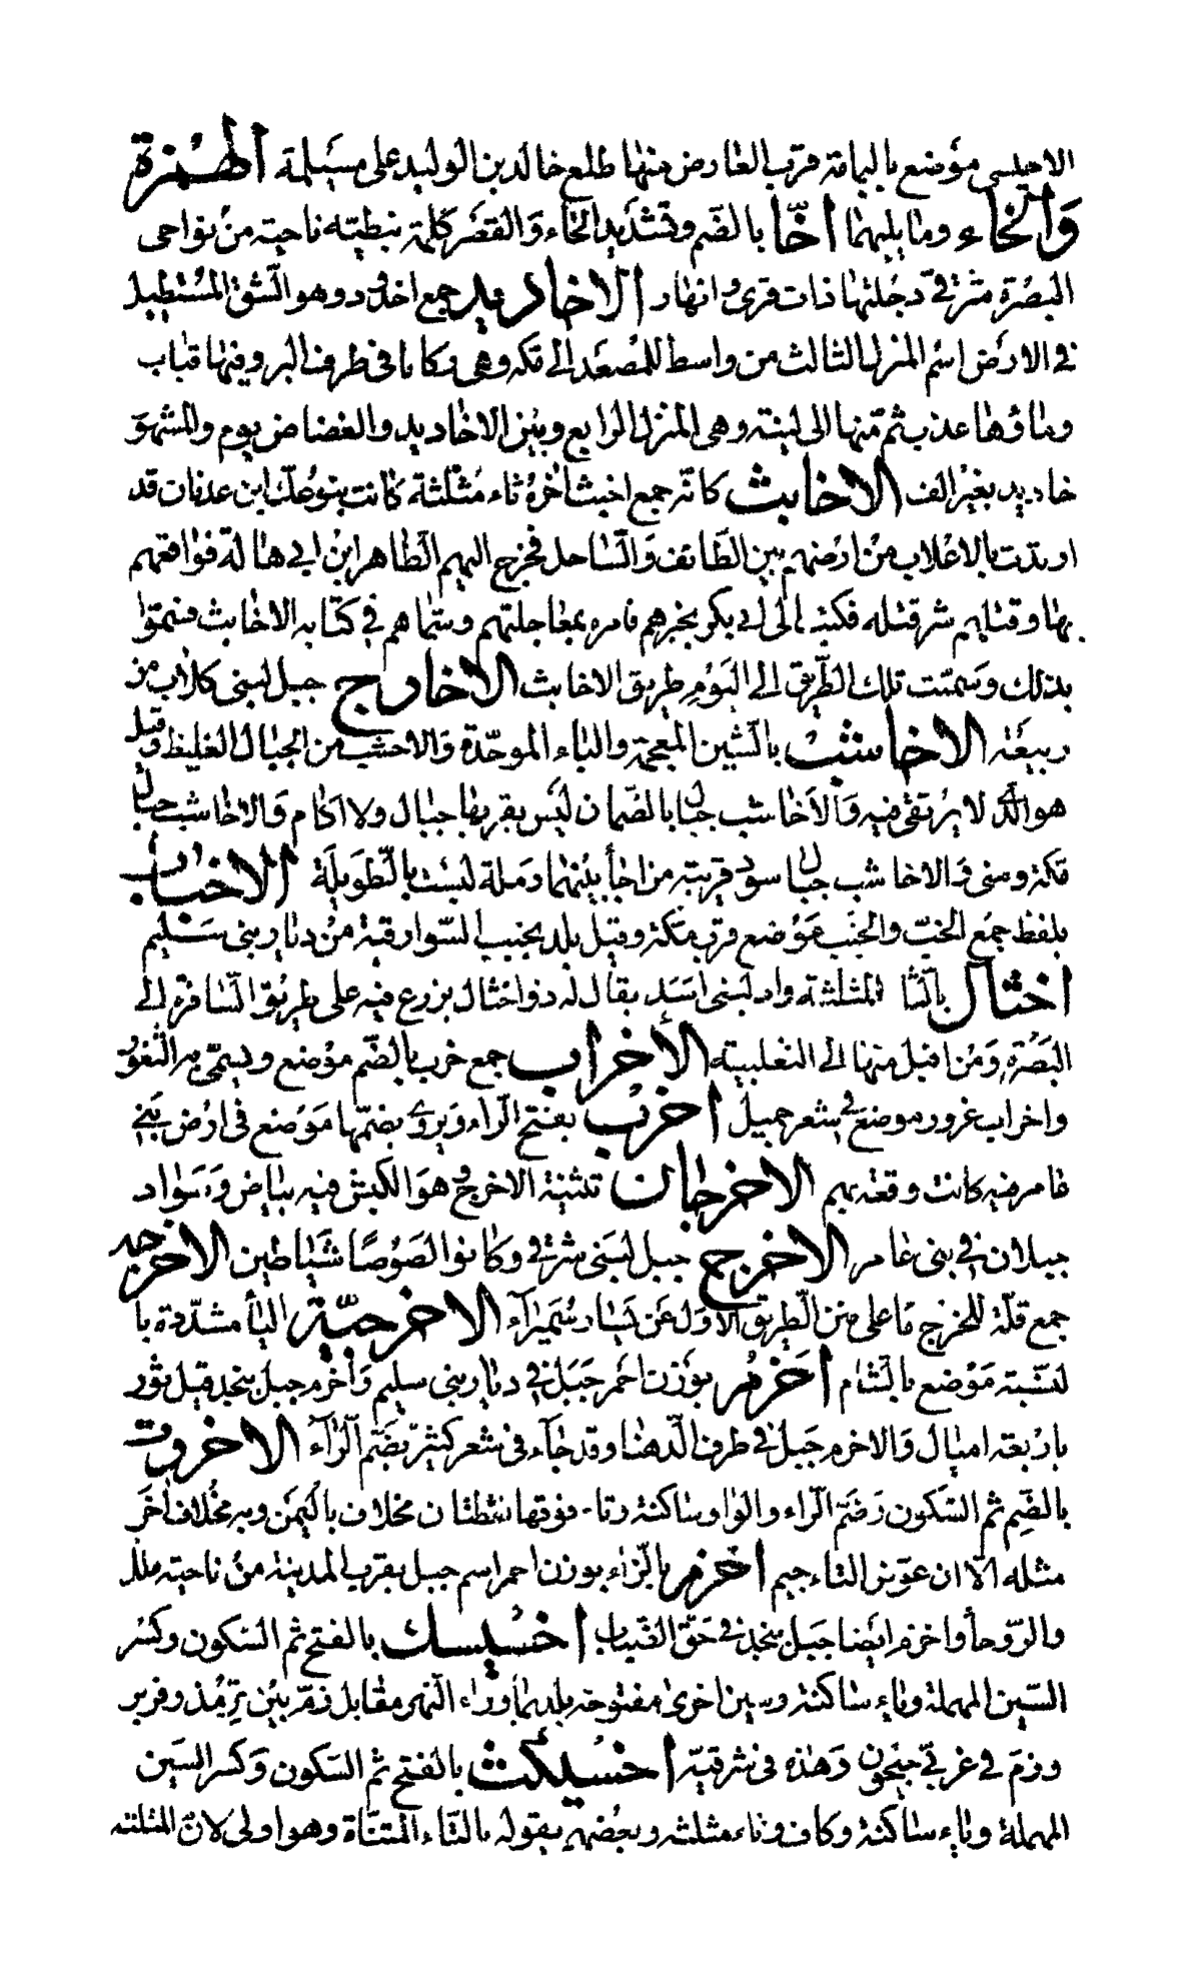 الاحيسى موضع باليمامة قرب العارض منها طلع خالد بن الوليد على مسيلمة الهمزة
وَالخاء وما يليهما اخّا بالضم وتشديد الخاء وَالقصر كلمة نبطيّه ناحيته من نواحى
البصرة مشرقىّ دجلتها ذات قرى وانهار الاخاديد جمع اخدود وهو الشق المستطيل
فى الارض اسم المنزل الثالث من واسط للمصعد الى مكه وهى ركايا فى طرف البر وفيها قباب
وماؤها عذب ثم منها الى لينة وهى المنزل الرابع وبين الاخاديد والغضاض يوم والمشهو
خاديد بغير الف الاخابث كانّه جمع اخبث اخره ثاء مثلثة كانت بنو عك ابن عدنان قد
ارتدت بالاعلاب من ارضهم بين الطائف وَالساحل فخرج اليهم الطاهر ابن ابى هالة فواقعهم
بها وقتلهم شر قتله فكتب الى ابى بكر يخبرهم فامره بمعاجلتهم وسمّاهم فى كتابه الاخابث فسمّوا
بذلك وَسمّيت تلك الطّريق الى اليوم طريق الاخابث الاخارج جبل لبنى كلاب من
ربيعَة الاخاشب بالشين المعجمة والباء الموحّدة وَالاخشب من الجبال الغليظ وقيل
هو الذى لا يرتقى فيه وَالاخاشب جبال بالصّمان ليس بقربها جبال ولا آكام وَالاخاشب جبال
مكة ومنى وَالاخاشب جبال سود قريبة من اجأ بينهما رملة ليست بالطّويلة الاخباب
بلفظ جمع الخبّ والخبَب مَوضع قرب مكة وقيل بلد بجنب السّوارقية من ديار بنى سليم
اخثال بالثا المثلثة واد لبنى اسد يقال له ذو اخثال يزرع فيه على طريق السّافرة الى
البَصْرة وَمن اقبل منها الى الثعلبية الأخراب جمع خرب بالضّم موضع ويسمّى به الثغور
واخراب عرور موضع فى شعر جميل اخرب بفتح الرّاء ويروى بضمّها مَوضع فى ارض بَنى
عامر فيه كانت وقعة بهم الاخرجان تثنية الاخرج وهوَ الكبش فيه بياض وَسَواد
جبلان فى بنى عامر الاخرج جبل لبَنى شرقى وكانوا لصَوصًا شَياطين الاخرجه
جمع قلّة للخرج مَا على متن الطّريق الاول عَن يسَار سُمَيراء الاخرجيّة اليأ مشدّدة يا
لنسّبة مَوضع بالشام اخرُم بوزن احمر جَبَل فى ديار بنى سليم وَاخرم جبل بنجد قيل ثور
باربعة اميال وَالاخرم جَبل فى طرف الدّهنا وقد جآء فى شعر كثيّر بضَم الرّآء الاخروت
بالضّم ثم السّكون وَضَم الرّاء والواو ساكنة وتاء فوقها نقطتان مخلاف باليمَن وبه مخلاف اخر
مثله الّا ان عوّض التاء جيم اخزم بالزّاء بوزن احمر اسم جبل بقرب المدينة من ناحيته ملل
والرّوحأ واخزم ايضا جبل بنجد فى حَق الضّباب اخسيسك بالفتح ثم السّكون وكسر
السّين المهملة وياء ساكنة وسين اخرى مفتوحة بلد بما وراء النّهر مقابل زمّ بين تِرمُذ وفربر
وزمّ فى غربىّ جيحون وَهذه فى شرقيّه اخسيكث بالفتح ثم السّكون وَكسر السَين
المهملة وياء ساكنة وكاف وثاء مثلثه وبعضهم يقوله بالتّاء المثنّاة وهو اولى لانّ المثلثه